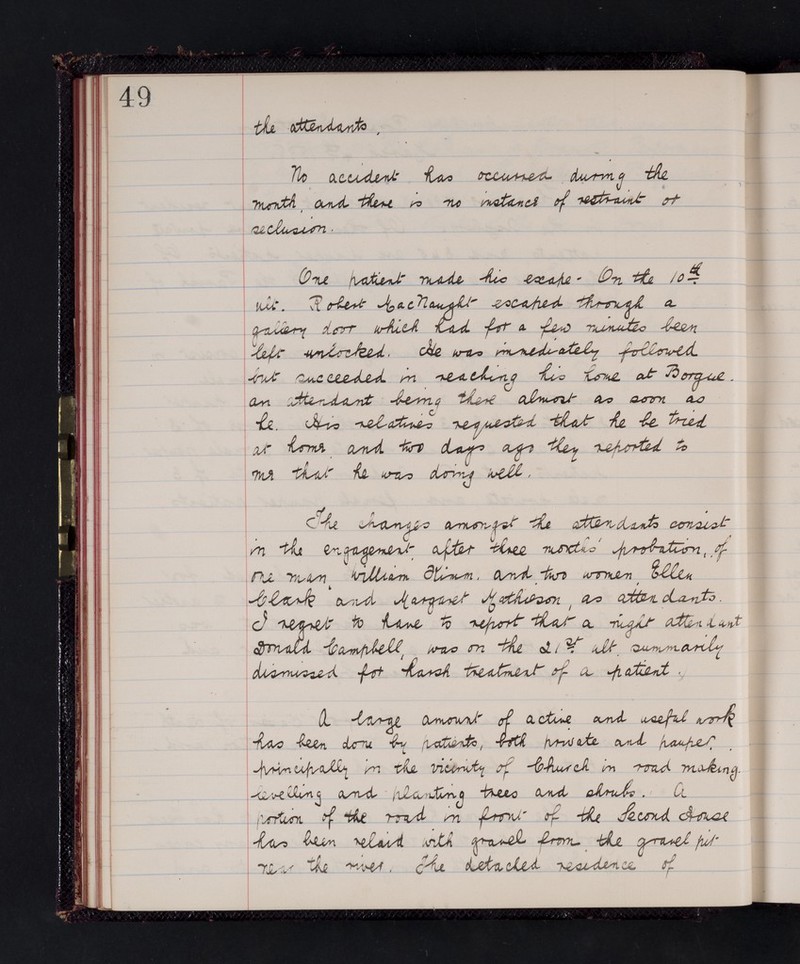 49
the attendants.
No accident has occurred during the
month, and there is no instance of restraint or
seclusion.
One patient made his escape - On the 10th
ult. Robert MacNaught escaped through a
gallery door which had for a few minutes been
left unlocked. He was immediately followed
but succeeded in reaching his home at Borgue.
an attendant being there almost as soon as
he. His relatives requested that he be tried
at home and two days ago they reported to
me that he was doing well.
The changes amongst the attendants consist
in the engagement, after three months' probation, of
one man, William Himm, and two women, Ellen
Clark and Margaret Mathieson, as attendants.
I regret to have to report that a night attendant
Donald Campbell, was on the 21st ult. summarily
dismissed for harsh treatment of a patient.
A large amount of active and useful work
has been done by patients, both private and pauper,
principally in the vicinity of Church in road making,
levelling and planting trees and shrubs. A
portion of the road in front of the Second House
has been relaid with gravel from the gravel pit
near the river. The detached residence of